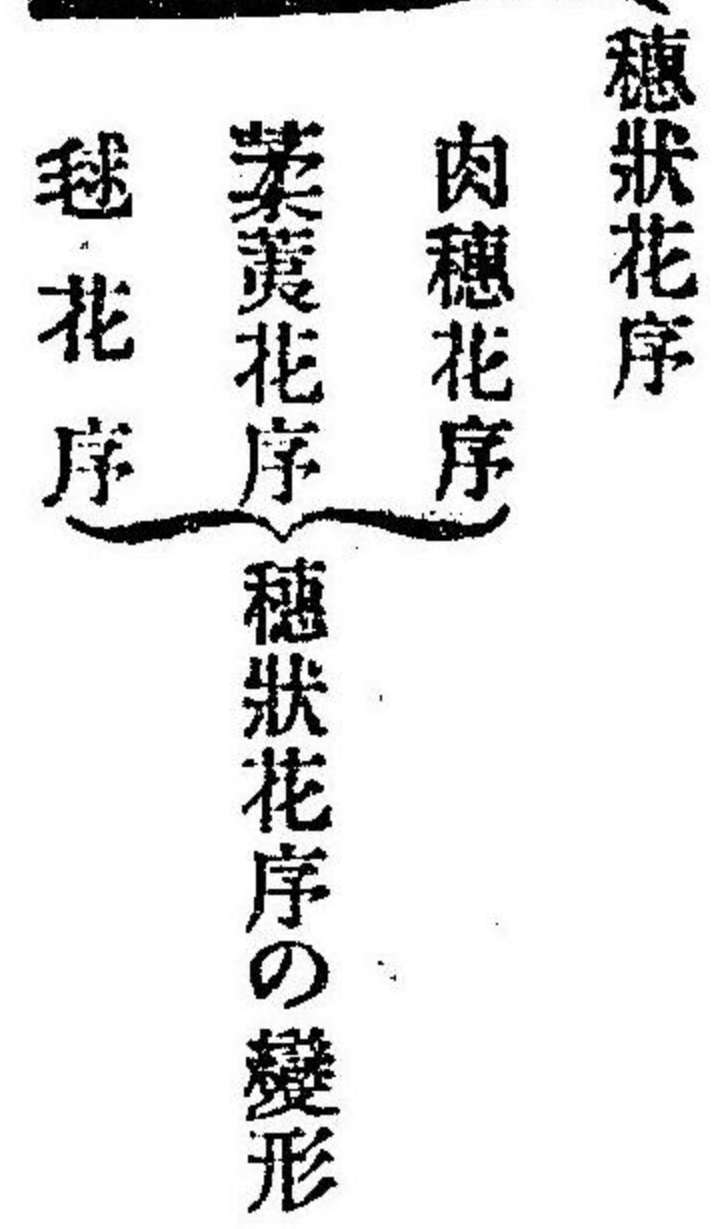 穗狀花序
肉穗花序
葇荑花序
毬花序
穗狀花序の變形